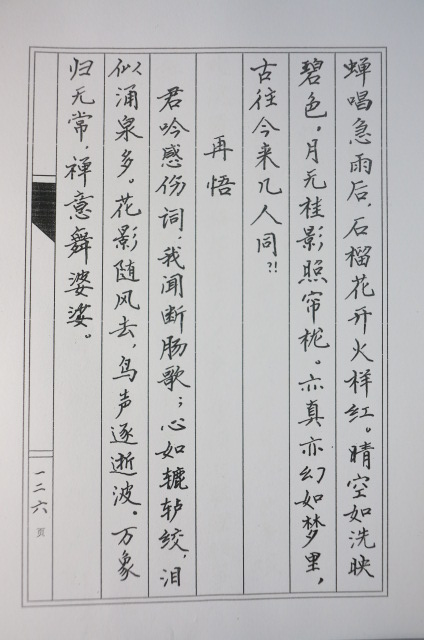 蝉唱急雨后，石榴花开火样红。晴空如洗映
碧色，月无桂影照帘栊。亦真亦幻如梦里，
古往今来几人同？！
再悟
君吟感伤词，我闻断肠歌；心如辘轳绞，泪
似涌泉多。花影随风去，鸟声逐逝波。万象
归无常，禅意舞婆娑。
一二六页